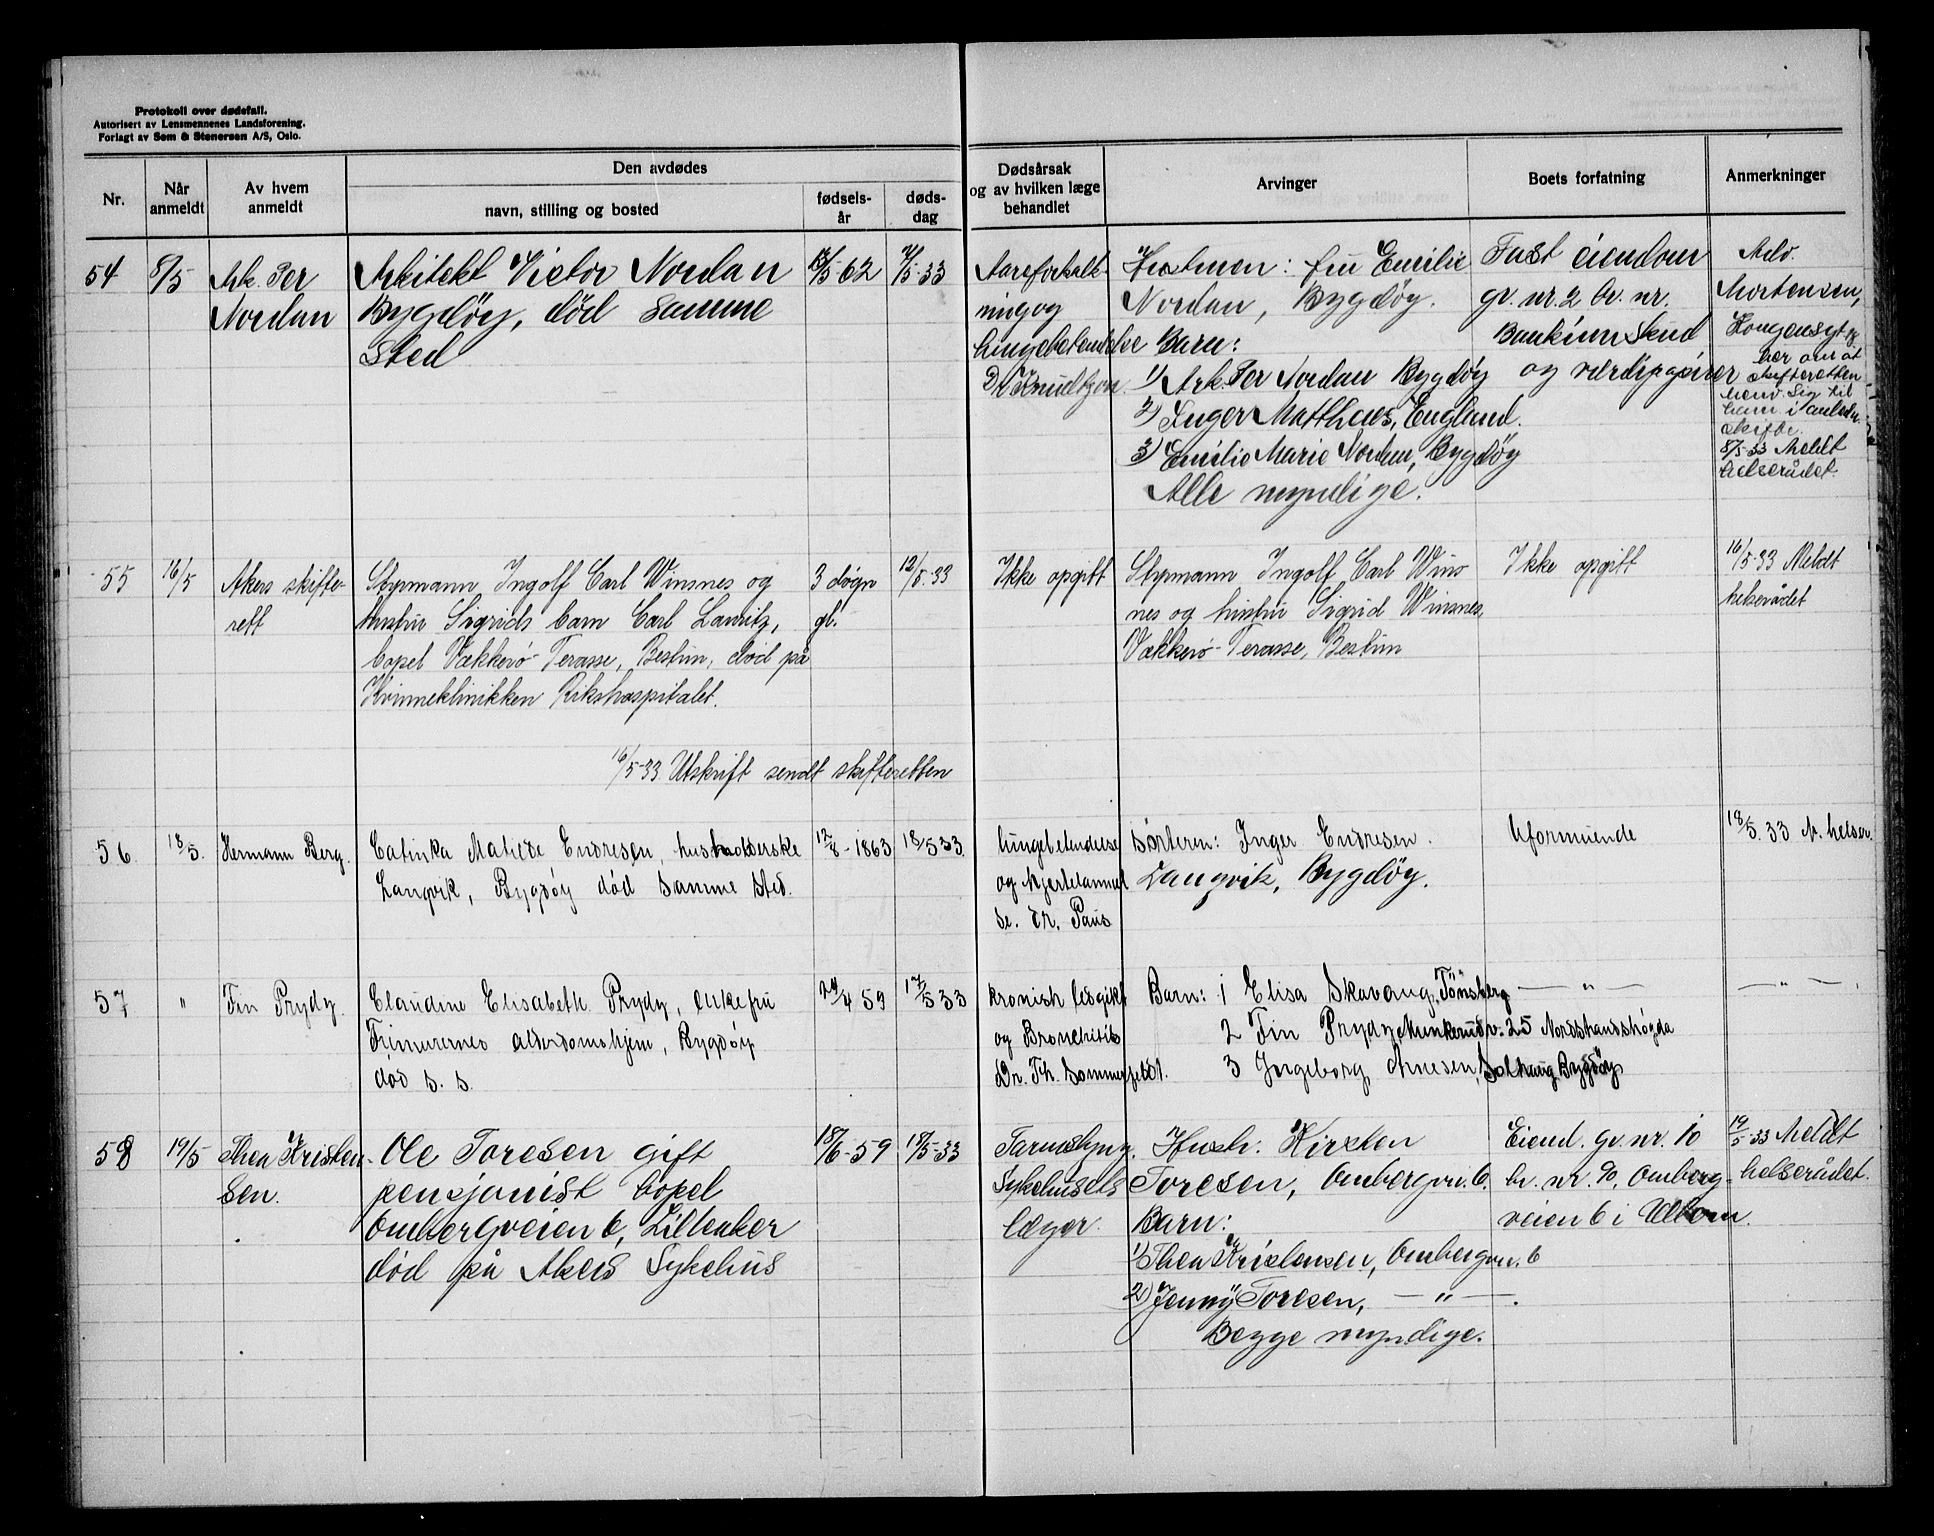 Protokoll over dødsfall.
Autorisert av Lensmennenes Landsforening.
Forlagt av Sem & Stenersen A/S, Oslo.
Nr.
Når anmeldt
Av hvem anmeldt
Den avdødes
navn, stilling og bosted
fødsels-år
døds-dag
Dødsårsak og av hvilken læge behandlet
Arvinger
Boets forfatning
Anmerkninger
54
8/5
Ark. Per
Nordan
Arkitekt Victor Nordan
Bygdøy, død samme
sted
/5-62
/5-33
Aareforkalk-
ning og
lungebetendelse
Dr Knudtzon
Hustruen: fru Emilie
Nordan, Bygdøy.
Barn:
1) Ark. Per Nordan Bygdøy
2) Inger Matthews, England.
3) Emilie Marie Nordan, Bygdøy
Alle myndige.
Fast eiendom
gr. nr. 2 br. nr.
Bankinnskud
og værdipapirer
Adv.
Mortensen,
Kongensgt
ber om at
skifteretten
henv. sig til
ham i anledn.
skifte.
8/5-33 Meldt
helserådet.
55
16/5
Akers skifte-
rett
Styrmann Ingolf Carl Winsnes og
hustru Sigrids barn Carl Lauritz,
bopel Vækkerø-Terasse, Bestun, død på
Kvinneklinikken Rikshospitalet.
16/5-33 Utskrift sendt skifteretten
3 døgn
gl.
12/5-33
Ikke opgitt
Styrmann Ingolf Carl Wins
nes og hustru Sigrid Winsnes,
Vækkerø-Terasse, Bestun
Ikke opgitt
16/5-33 Meldt
helserådet
56
18/5.
Hermann Berg.
Catinka Matilde Endresen, husholderske
Langvik, Bygdøy død samme sted.
12/8-1863
18/5 33
lungebetendelse
og hjertelammel
se. dr. Paus
Søsteren: Inger Endresen.
Langvik, Bygdøy.
Uformuende
18/5. 33 M. helser.
57
"
Fin Prydz
Claudine Elisabeth Prydz, enkefru
Frimurernes alderdomshjem, Bygdøy
død s. s.
24/4 59
17/5 33
kronisk ledgikt
og Bronchitis
Dr. Th. Sommerfeldt.
Barn: 1 Elisa Skavang, Tönsberg
2 Fin Prydz Munkerudv. 25 Nordstrandshøgda
3 Ingeborg Arnesen, Solhaug Bygdøy
— " —
— " —
58
19/5
Thea Kristen-
sen.
Ole Toresen gift
pensjonist bopel
Ombergveien 6, Lilleaker
død på Akers Sykehus
18/6-59
18/5-33
Tarmslyng.
Sykehusets
læger.
Hustr: Kirsten
Toresen, Ombergvn. 6.
Barn:
1) Thea Kristensen, Ombergvn. 6
2) Jenny Toresen, — " —.
Begge myndige.
Eiend. gr. nr. 10
br. nr. 90, Omberg-
veien 6 i Ullern.
19/5-33 Meldt
helserådet.